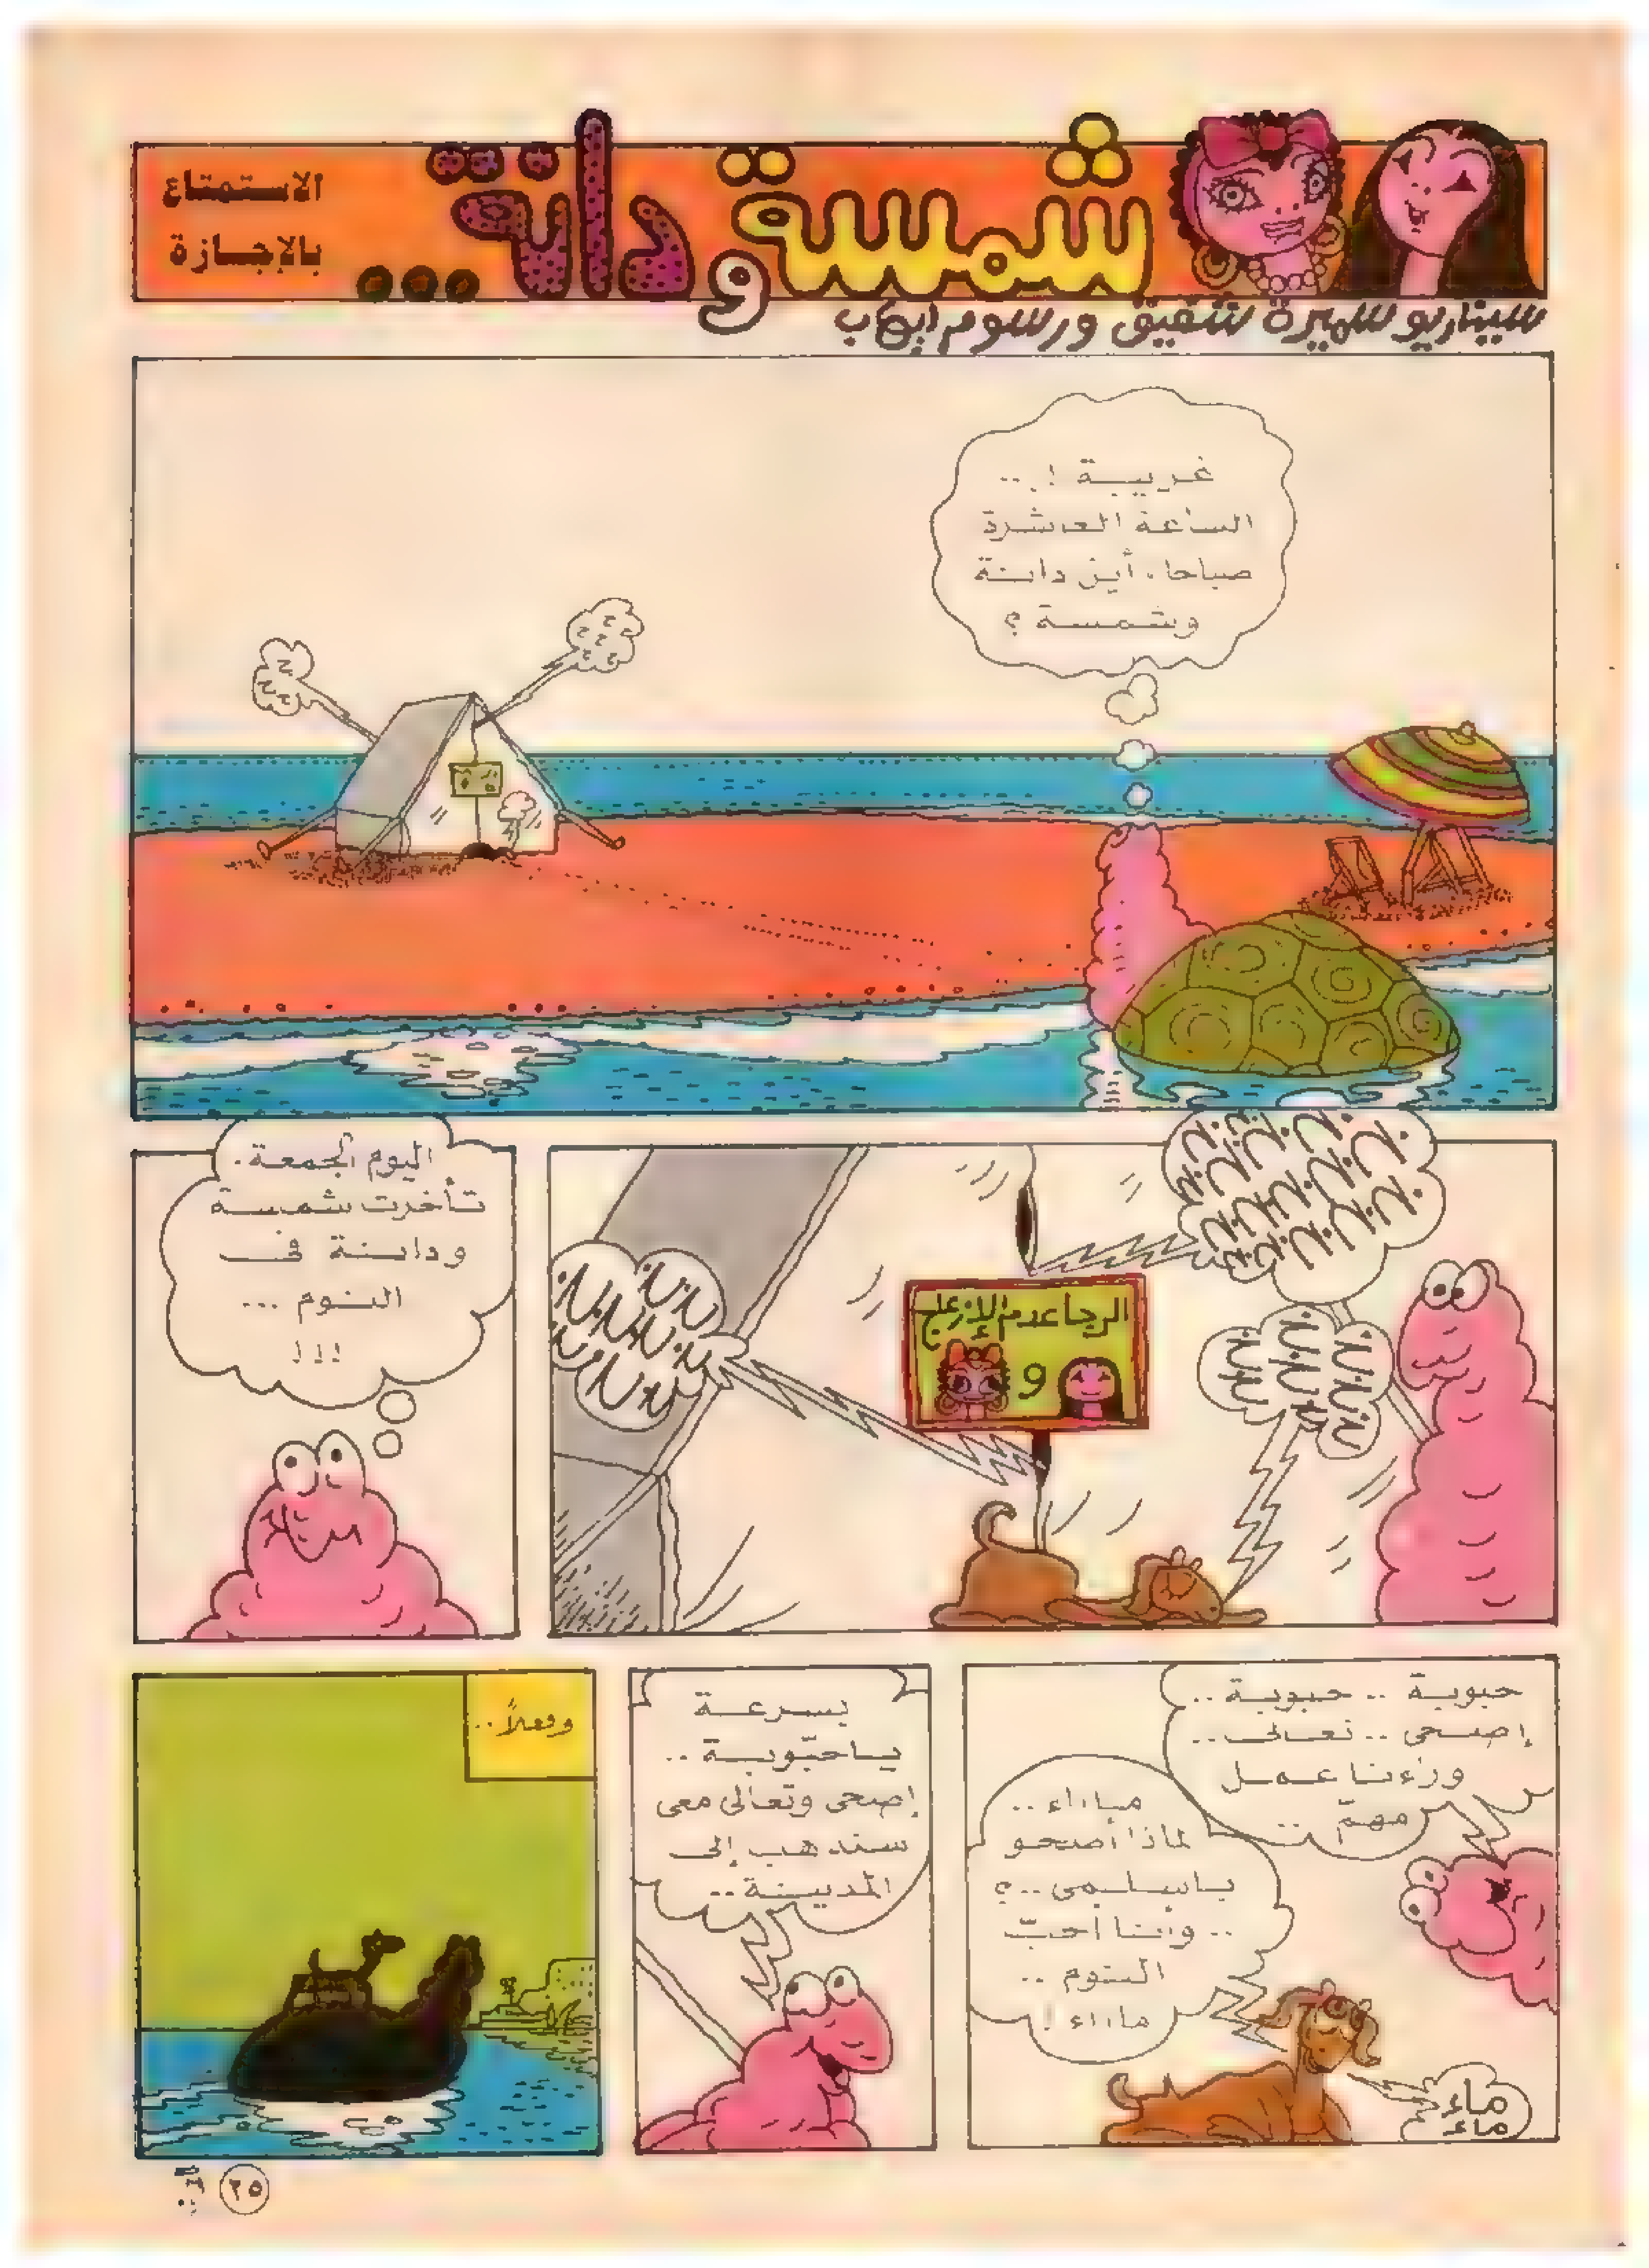 شمسة ودانة...
الاستمتاع
بالإجازة
سيناريو سميرة شفيق ورسوم إيهاب
غريبة !..
الساعة العاشرة
صباحا، أين دانة
وشمسة ؟
الرجا عدم الإزعاج
و
اليوم الجمعة.
تأخرت شمسة
ودانة فى
النوم ...
!!!
حبوبة .. حبوبة ..
إصحى .. تعالى ..
وراءنا عمل
مهمّ ..
مااااء ..
لماذا أصحو
ياسلمى ..؟
.. وأنا أحبّ
النوم ..
مااااء !
ماء
ماء
بسرعة
ياحبّوبة ..
إصحى وتعالى معى
سنذهب إلى
المدينة ..
وفعلاً ..
٢٥